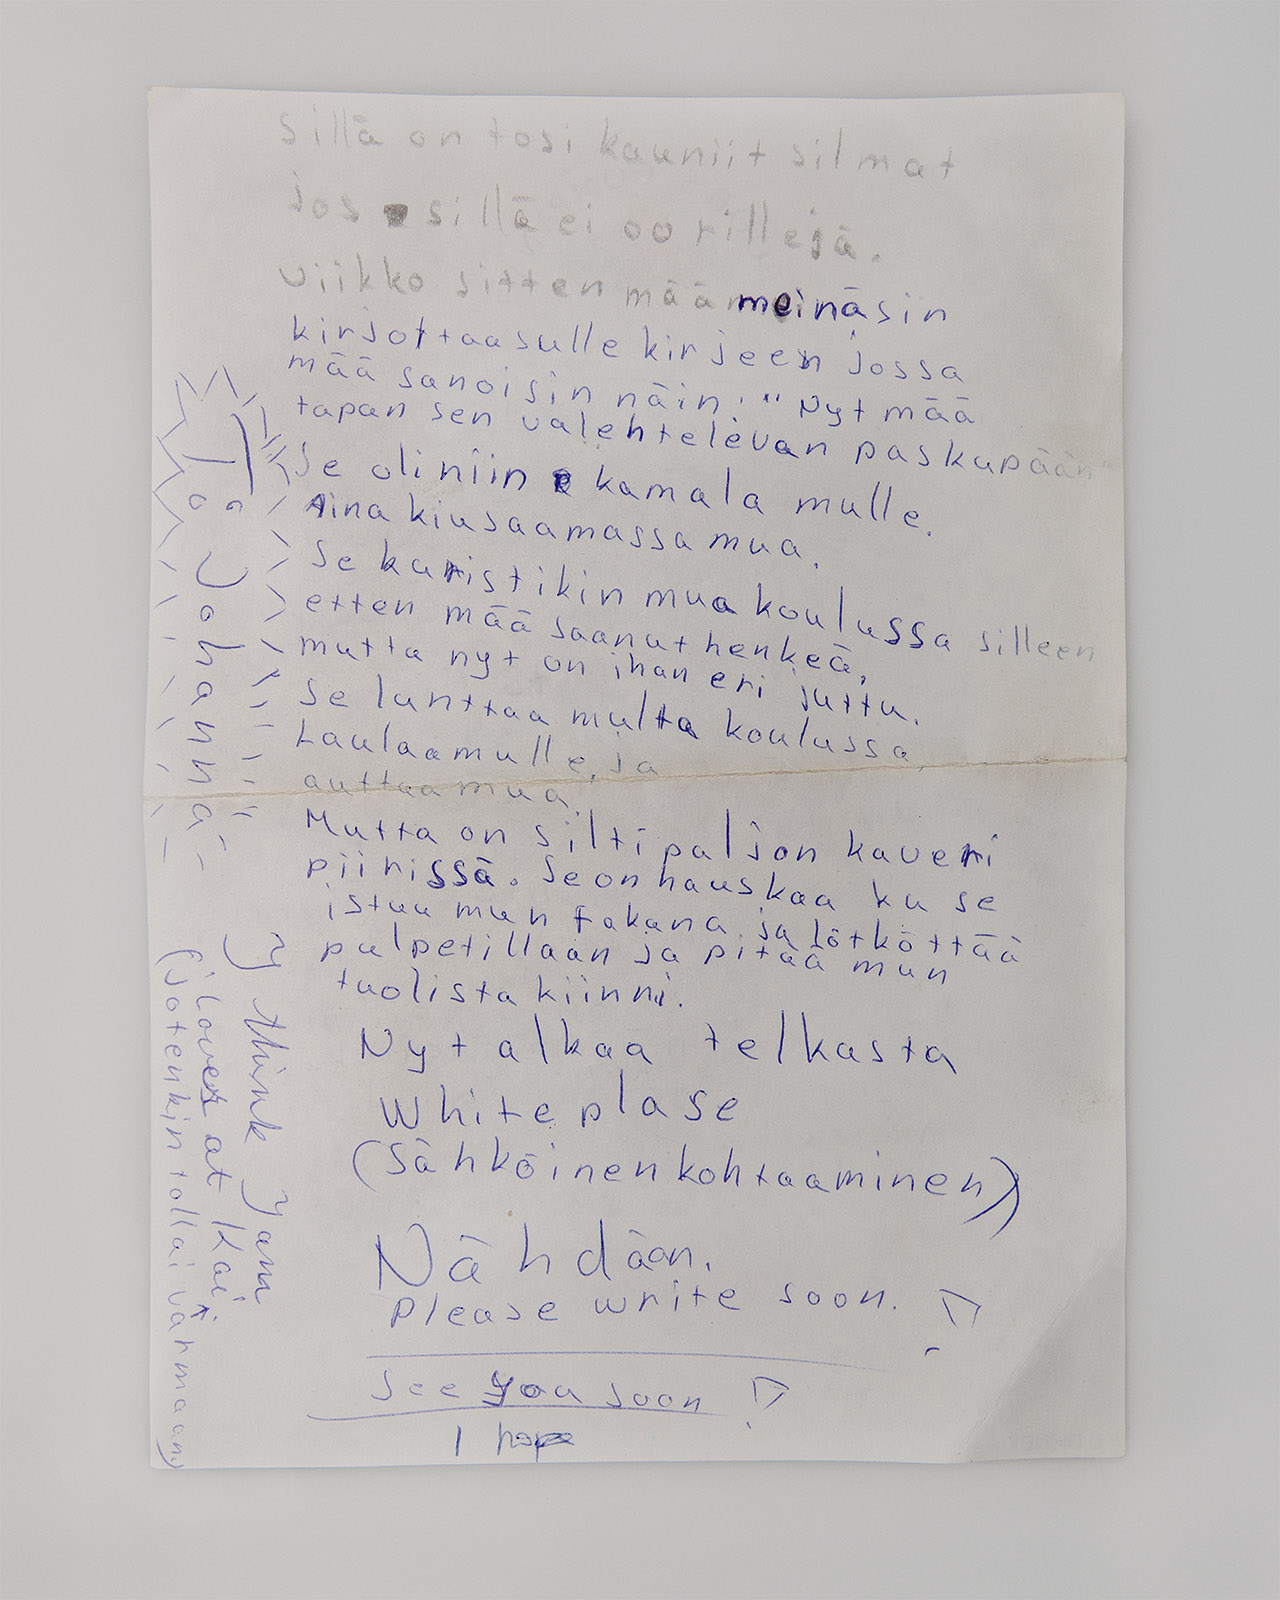 sillä on tosi kauniit silmat
jos sillä ei oo rillejä.
viikko sitten mää meinäsin
kirjottaa sulle kirjeen jossa
mää sanoisin näin: "Nyt mää
tapan sen valehtelevan paskapään"
Se oli niin kamala mulle.
Aina kiusaamassa mua.
Se kuristikin mua koulussa silleen
etten mää saanut henkeä,
mutta nyt on ihan eri juttu.
Se lunttaa multa koulussa,
Laulaa mulle, ja
auttaa mua.
Mutta on silti paljon kaveri
piirissä. Se on hauskaa ku se
istuu mun takana ja lötköttää
pulpetillaan ja pitää mun
tuolista kiinni.
Nyt alkaa telkasta
white plase
(Sähköinen kohtaaminen)
Nähdään.
Please write soon.!
See you soon!
I hope
T
oo Johanna
I think I am
i lovet at Kai
(jotenkin tollai värmaan)